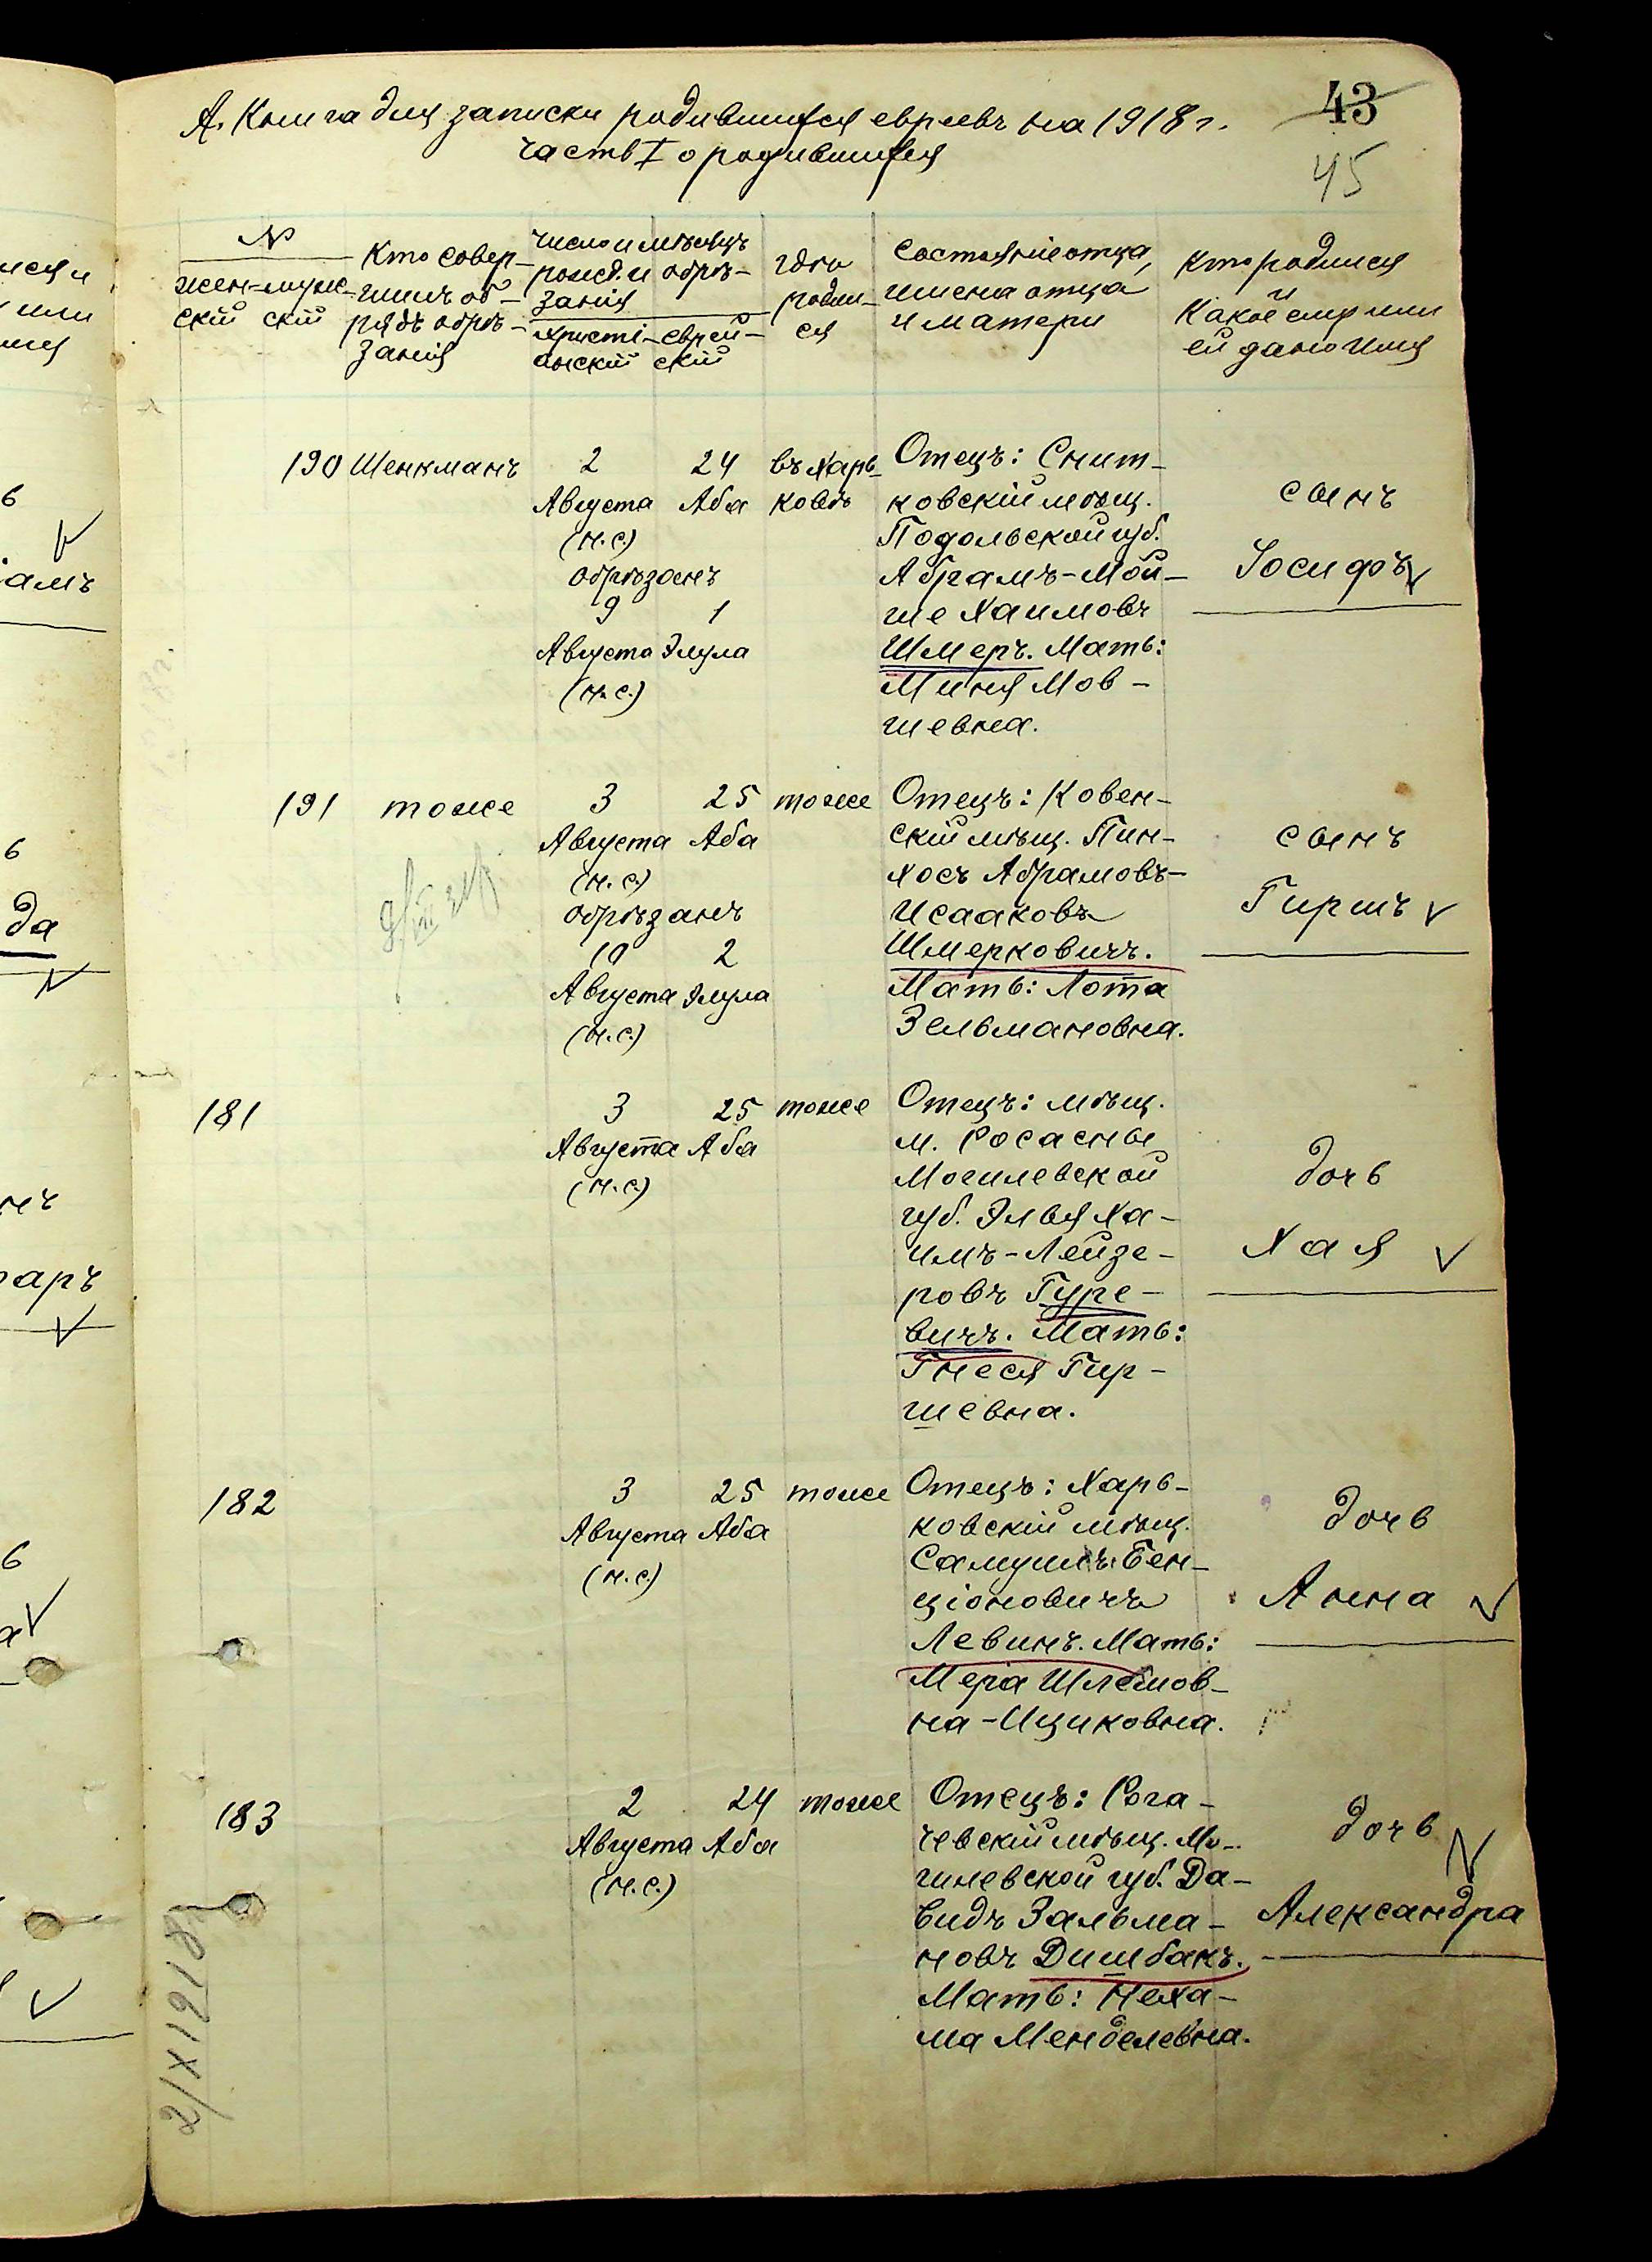 А. Книга для записки родившихся евреевъ на 1918 г.
43
часть I о родившихся
45
№
жен- муж-
скій скій
Кто совер-
шилъ об-
рядъ обрѣ-
занія
число и мѣсяцъ
рожд. и обрѣ-
занія
христі- еврей-
анскій скій
гдѣ
родил-
ся
Состояніе отца,
имена отца
и матери
Кто родился
и
Какое ему или
ей дано имя
190 Шенкманъ 2 24 въ Харь-
Августа Аба ковѣ
(н.с.)
обрѣзанъ
9 1
Августа Элула
(н.с.)
Отецъ: Снит-
ковскій мѣщ.
Подольской губ.
Абрамъ-Мой-
ше Хаимовъ
Шмеръ. Мать:
Миня Мов-
шевна.
сынъ
Іосифъ
191 тоже 3 25 тоже
Августа Аба
(н.с.)
обрѣзанъ
10 2
Августа Элула
(н.с.)
Отецъ: Ковен-
скій мѣщ. Пин-
хосъ Абрамовъ-
Исааковъ
Шмерковичъ.
Мать: Лота
Зельмановна.
сынъ
Гиршъ
181 3 25 тоже
Августа Аба
(н.с.)
Отецъ: мѣщ.
м. Росасны
Могилевской
губ. Элья Ха-
имъ-Лейзе-
ровъ Гуре-
вичъ. Мать:
Гнеся Гир-
шевна.
дочь
Хая
182 3 25 тоже
Августа Аба
(н.с.)
Отецъ: Харь-
ковскій мѣщ.
Самуилъ Бен-
ціоновичъ
Левинъ. Мать:
Мера Шлёмов-
на-Ициковна.
дочь
Анна
183 2 24 тоже
Августа Аба
(н.с.)
Отецъ: Рога-
чевскій мѣщ. Мо-
гилевской губ. Да-
видъ Зальма-
новъ Дишбакъ.
Мать: Неха-
ма Менделевна.
дочь
Александра
2/X 1918